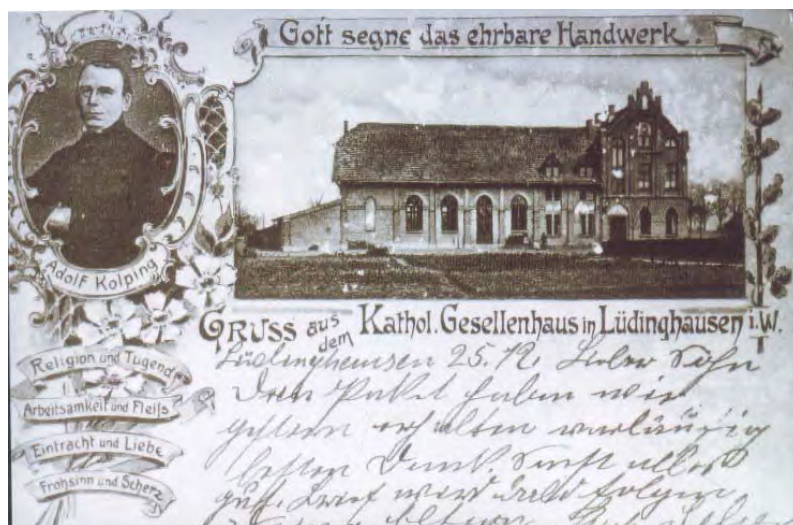 Gott segne das ehrbare Handwerk.
Adolf Kolping
Gruss aus dem Kathol. Gesellenhaus in Lüdinghausen i. W.
Religion und Tugend
Arbeitsamkeit und Fleiſs
Eintracht und Liebe
Frohsinn und Scherz
Lüdinghausen 25.12. Lieber Sohn
Dein Paket haben wir
gestern erhalten vorläufig
besten Dank. Sonst alles
gut. Brief wird bald folgen